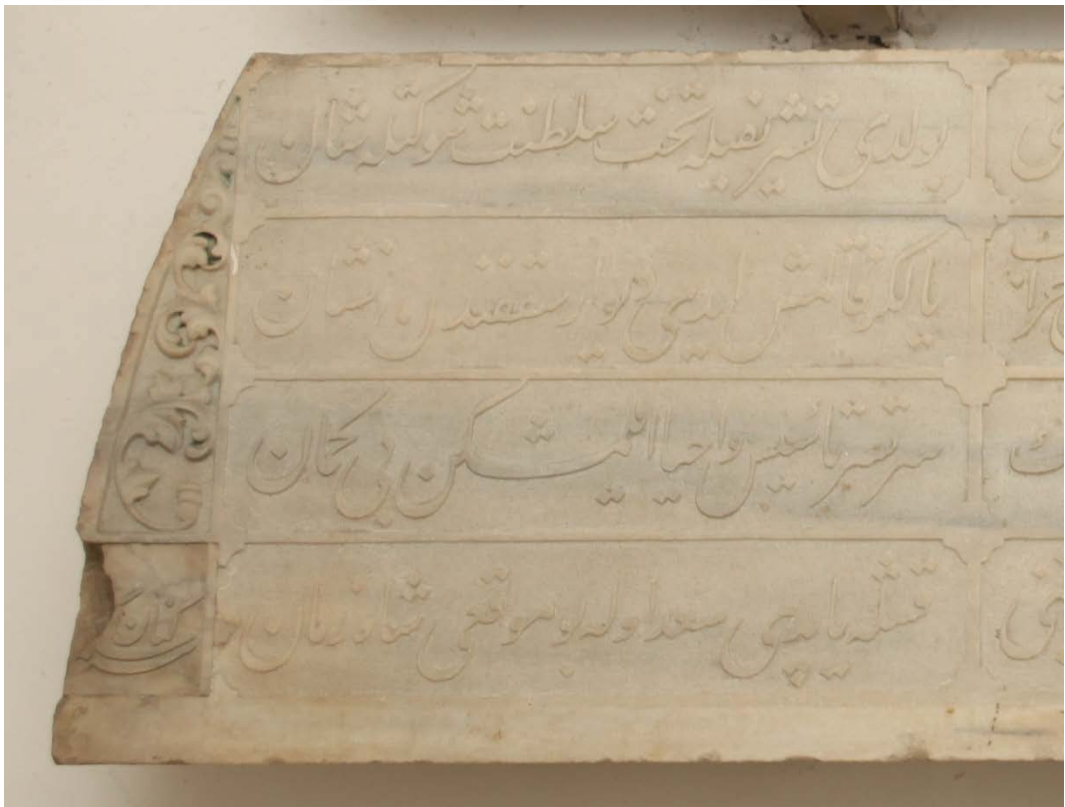 بولدی تشریفیله تخت سلطنت شوكتله شان
یالكز قالمش ایدی دیوار سقفندن نشان
سرتسر تأسیس واحیا ایتمشكن بی كمان
قشله یاپدی سعد اوله بو موقعی شاه زمان